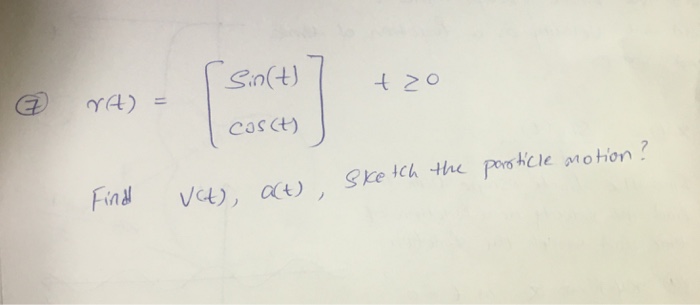 ⑦ r(t) = [ Sin(t) cos(t) ] t ≥ 0
Find V(t), a(t), Sketch the particle motion?